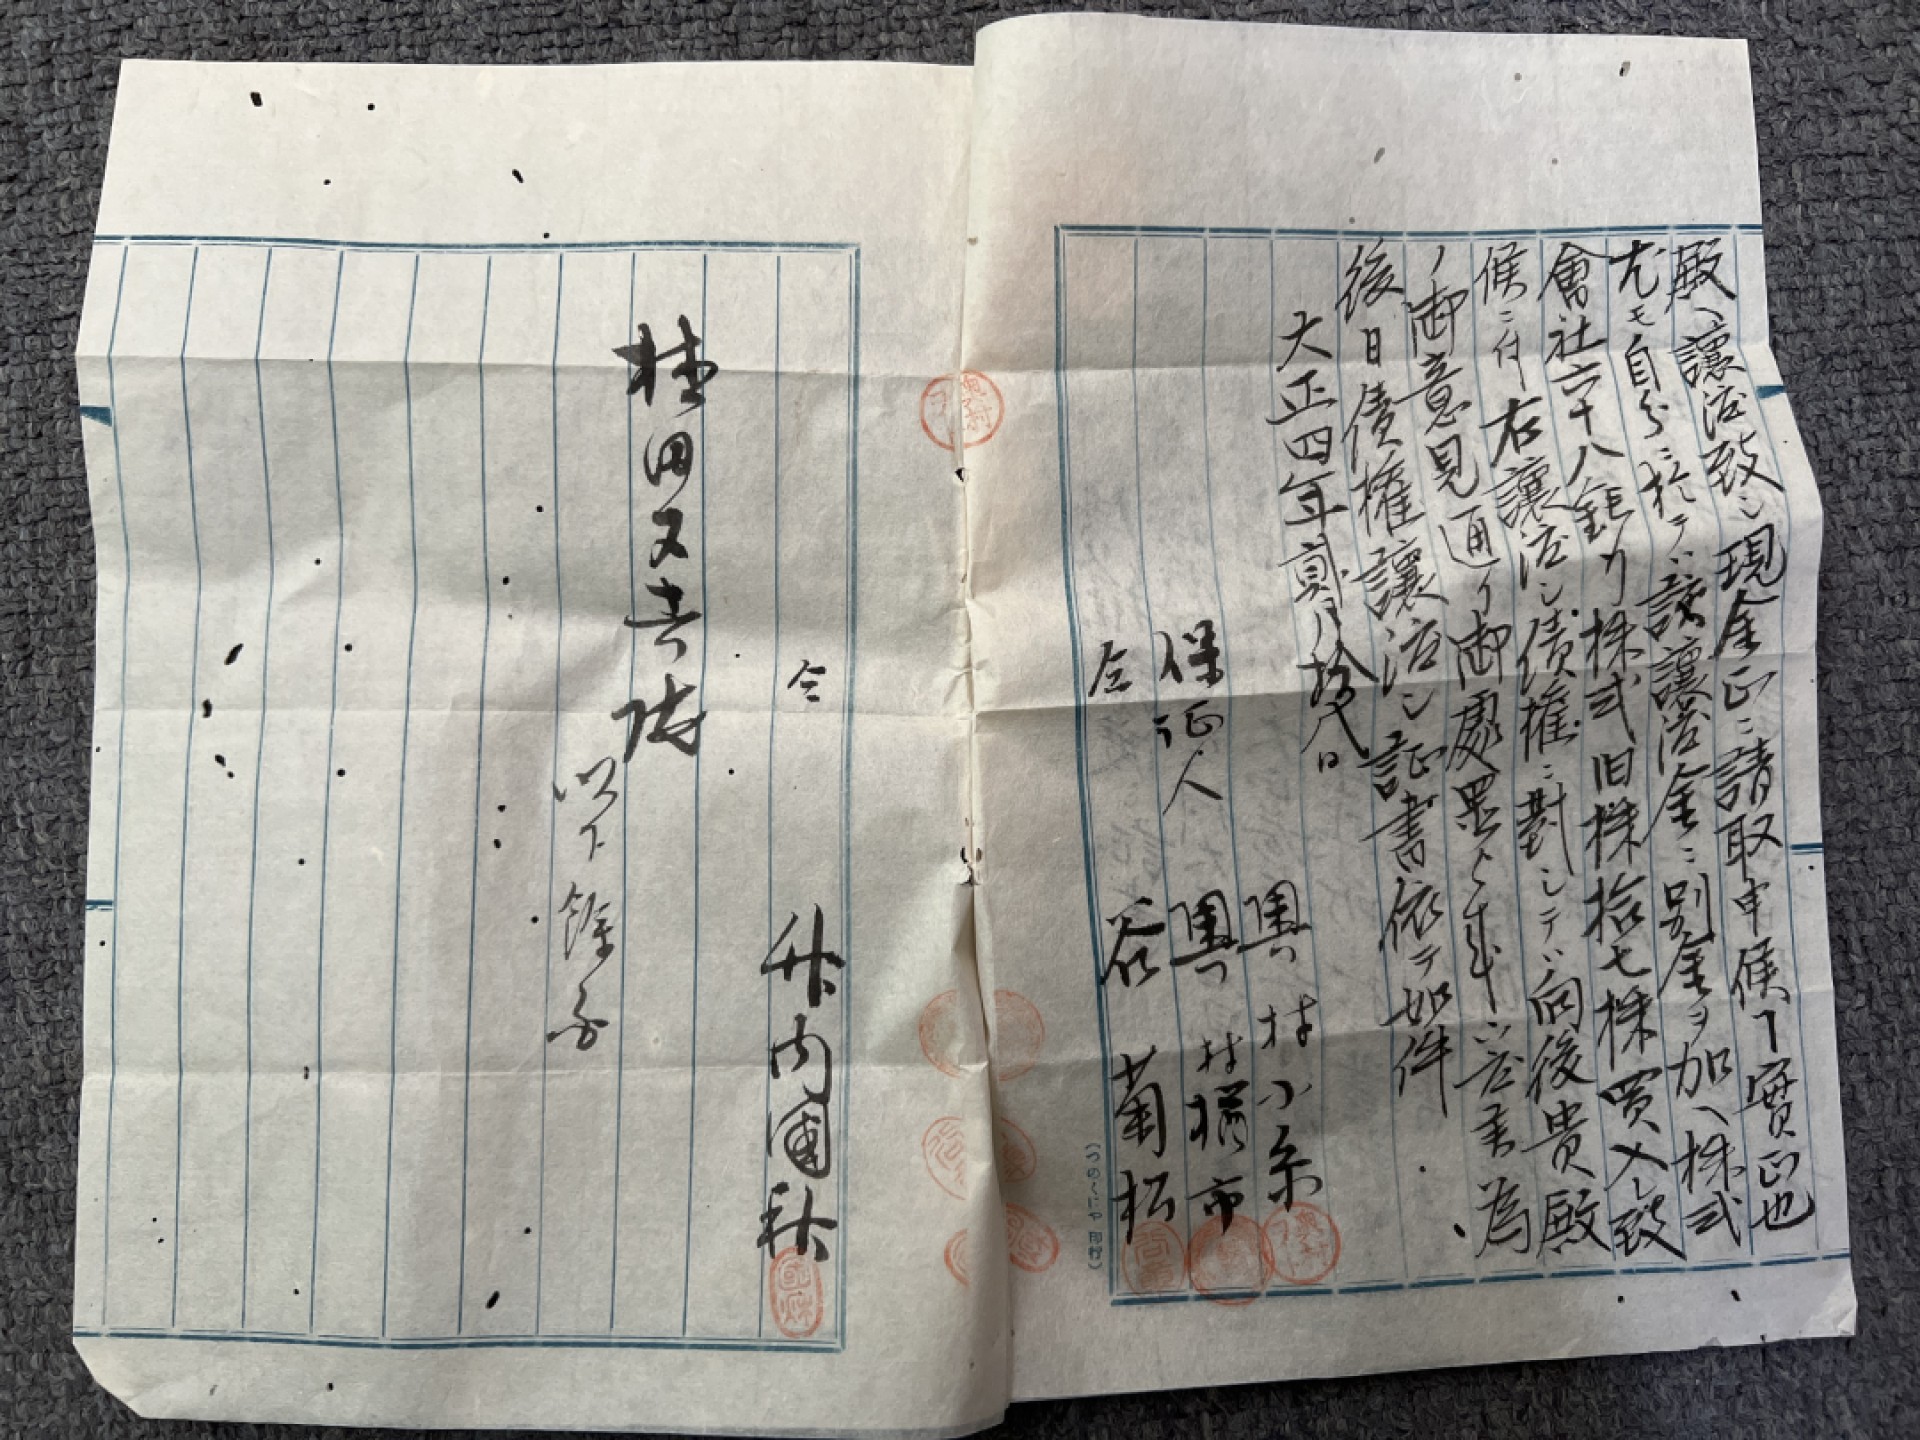 殿ヘ譲渡致シ現金正ニ請取申候事實正也
尤モ自分ニ於テハ該譲渡金ニ別金ヲ加ヘ株式
會社六十八銀行株式旧株拾七株買入レ致
候ニ付右譲渡シ債権ニ對シテハ向後貴殿
ノ御意見通リ御處置
後日債権譲渡シ証書依テ如件
大正四年 月拾八日
奥村小糸
保証人 奥村 市
仝 谷菊松
仝 竹内国秋
桂田又吉殿
以下餘白
(つのくにや印行)